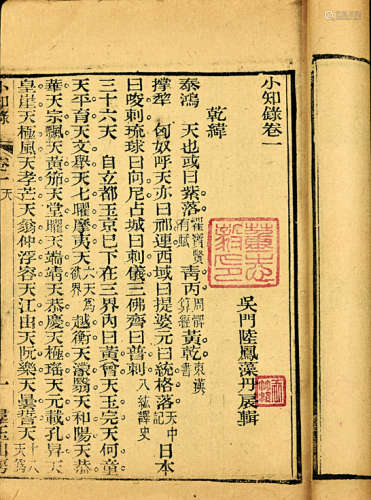 小知錄卷一
吳門陸鳳藻丹扆輯
乾緯
泰鴻 天也或曰紫落齊賢有賦青丙周髀算經黃乾東漢書
撐犂 匈奴呼天亦曰祁連西域曰提婆元曰統格落天中記日本
曰唆剌琉球曰向尼占城曰剌儀三佛齊曰普剌八紘譯史
三十六天 自玄都玉京已下在三界內曰黃曾天玉完天何童
天平育天文舉天七曜摩夷天六天為欲界越衡天濛翳天和陽天恭
華天宗飄天黃笳天堂曜天端靖天恭慶天極瑤天元載孔昇天
皇崖天極風天孝芒天翁仲浮容天江由天阮樂天曇誓天十八天為
小知錄 卷一 天 一